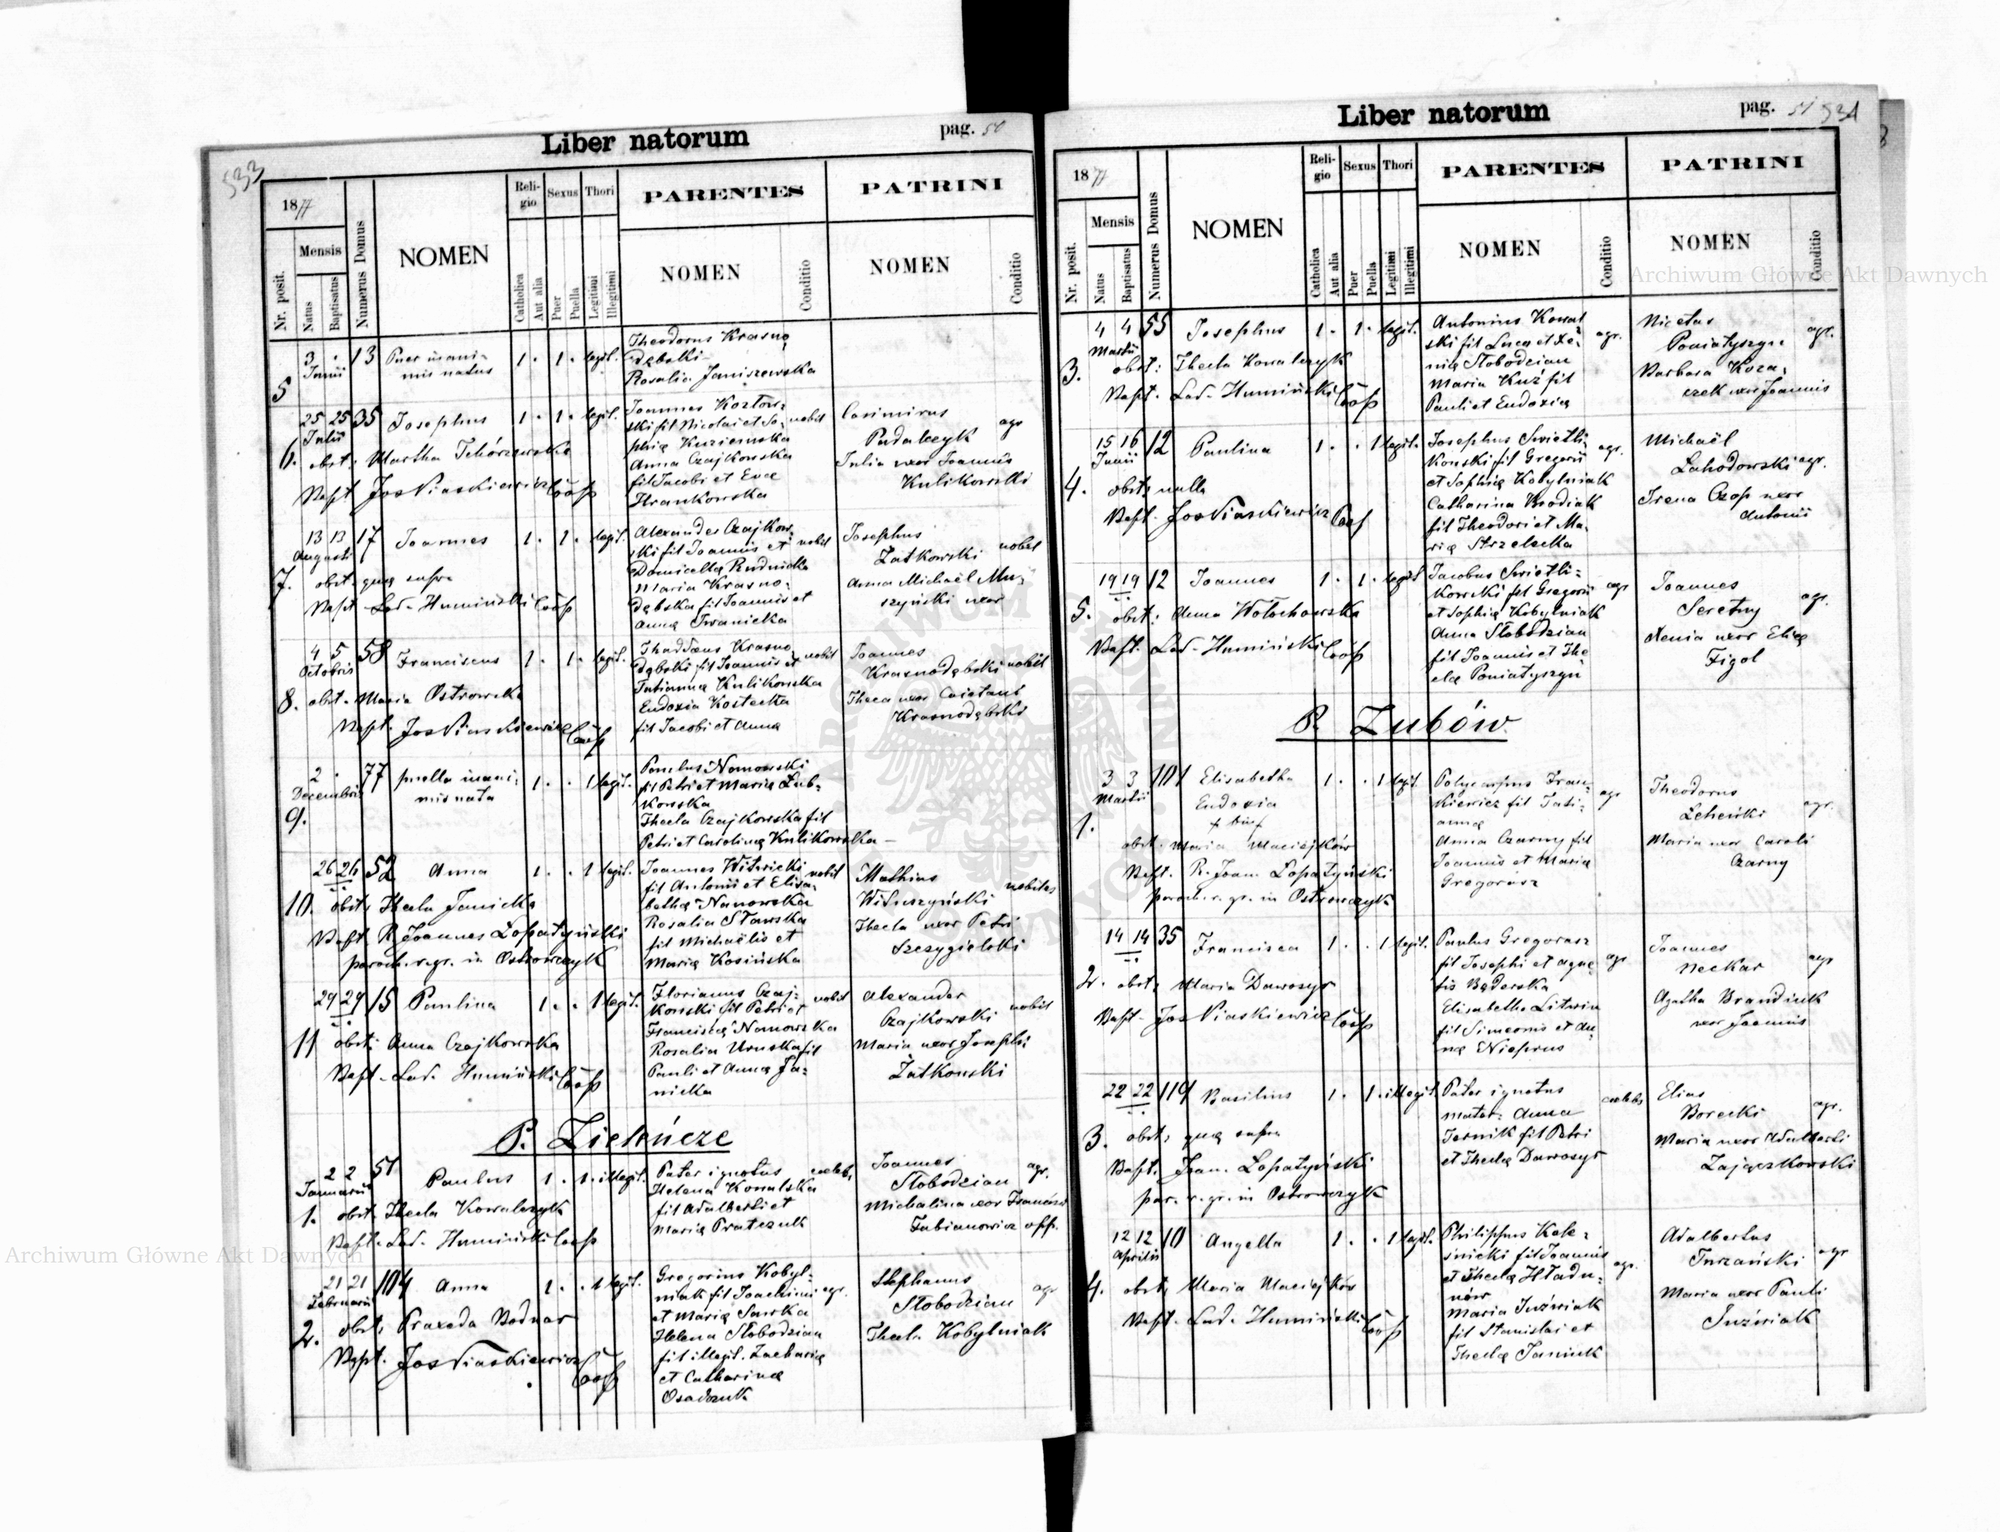 Liber natorum
pag. 50
533
1877
Mensis
Nr. posit.
Natus
Baptisatus
Numerus Domus
NOMEN
Religio
Catholica
Aut alia
Sexus
Puer
Puella
Thori
Legitimi
Illegitimi
PARENTES
NOMEN
Conditio
PATRINI
NOMEN
Conditio
5
3 Junii 13 Puer inanimis natus 1. 1. legit.
Theodorus Krasno
dębski
Rosalia Janiszewska
6.
25 25 Julii 35 Josephus 1. 1. legit.
obst. Martha Tchórzewska
Bapt. Jos Piaskiewicz Coop
Joannes Kozłow-
ski fil Nicolai et So- nobil
phiæ Kuziemska
Anna Czajkowska
fil Jacobi et Evæ
Hrankowska
Casimirus agr
Padalczyk
Julia uxor Joannis
Kulikowski
7.
13 13 Augusti 17 Joannes 1. 1. legit.
obst. quæ supra
Bapt. Lad. Humiński Coop
Alexander Czajkow-
ski fil Joannis et nobil
Domicellæ Rudnicka
Maria Krasno-
dębska fil Joannis et
Annæ Iwanicka
Josephus
Żatkowski nobil
Anna Michaël Mu-
szyński uxor
8.
4 5 Octobris 58 Franciscus 1. 1. legit.
obst. Maria Ostrowska
Bapt. Jos Piaskiewicz Coop
Thaddæus Krasno
dębski fil Joannis et nobil
Tatiannæ Kulikowska
Eudoxia Kostecka
fil Jacobi et Anna
Joannes
Krasnodębski nobil
Thecla uxor Caietani
Krasnodębski
9.
2 Decembris 77 puella inani-
mis nata 1. . 1 legit.
Paulus Nanowski
fil Petri et Mariæ Lub-
kowska
Thecla Czajkowska fil
Petri et Carolinæ Kulikowska
10.
26 26 52 Anna 1. . 1 legit.
obst. Thecla Janicka
Bapt R. Joannes Łopatyński
paroch. r. gr. in Ostrowczyk
Joannes Witwicki nobil
fil Antonii et Elisa-
bethæ Nanowska
Rosalia Stawska
fil Michaëlis et
Mariæ Kosińska
Mathias
Wituszyński nobiles
Thecla uxor Petri
Szczygielski
11
29 29 15 Paulina 1. . 1 legit.
obst. Anna Czajkowska
Bapt. Lad. Humiński Coop
Florianus Czaj- nobil
kowski fil Petri et
Franciscæ Nanowska
Rosalia Uruska fil
Pauli et Annæ Ja-
nicka
Alexander
Czajkowski nobil
Maria uxor Josephi
Żatkowski
P. Zieleńcze
1.
2 2 Januarii 51 Paulus 1. 1. illegit.
obst. Thecla Kowalczyk
Bapt. Lad. Humiński Coop
Pater ignotus cælebs
Helena Kowalska
fil Adalberti et
Mariæ Pratczuk
Joannes agr.
Słobodzian
Michalina uxor Francisci
Fabianowicz off.
2.
21 21 Februarii 104 Anna 1. . 1 legit.
obst. Praxeda Bodnar
Bapt. Jos Piaskiewicz Coop
Gregorius Kobyl-
niak fil Joachimi agr.
et Mariæ Sawka
Helena Słobodzian
fil illegit. Zachariæ
et Catharinæ
Osadczuk
Stephanus agr
Słobodzian
Thecla Kobylniak
Liber natorum
pag. 51 534
1877
Mensis
Nr. posit.
Natus
Baptisatus
Numerus Domus
NOMEN
Religio
Catholica
Aut alia
Sexus
Puer
Puella
Thori
Legitimi
Illegitimi
PARENTES
NOMEN
Conditio
PATRINI
NOMEN
Conditio
3.
4 4 Martii 55 Josephus 1. 1. legit.
obst: Thecla Kowalczyk
Bapt. Lad. Humiński Coop
Antonius Kowal
ski fil Lucæ et Xe- agr.
niæ Słobodzian
Maria Kuź fil
Pauli et Eudoxiæ
Nicetas agr.
Poniatyszyn
Barbara Koza-
czek uxor Joannis
4.
15 16 Junii 12 Paulina 1. . 1 legit.
obst. nulla
Bapt. Jos Piaskiewicz Coop
Josephus Swietli-
kowski fil Gregorii agr.
et Sophiæ Kobylniak
Catharina Brodiak
fil Theodori et Ma-
riæ Strzelecka
Michaël
Lahodowski agr.
Irena Czop uxor
Antonii
5.
19 19 12 Joannes 1. 1. legit
obst. Anna Wołochowska
Bapt. Lad. Humiński Coop
Jacobus Swietli- agr
kowski fil Gregorii
et Sophiæ Kobylniak
Anna Słobodzian
fil Joannis et The-
clæ Poniatyszyn
Joannes
Seretny agr.
Xenia uxor Eliæ
Figol
P. Zubów.
1.
3 3 Martii 101 Elisabetha 1. . 1 legit.
Eudoxia
obst. Maria Maciejków
Bapt. R. Joan. Łopatyński
paroch. r. gr. in Ostrowczyk
Polycarpus Fran-
kiewicz fil Tati- agr
annæ
Anna Czarny fil
Joannis et Mariæ
Gregorasz
Theodorus
Leheński agr.
Maria uxor Caroli
Czarny
2.
14 14 35 Francisca 1. . 1 legit.
obst. Maria Dawosyr
Bapt. Jos Piaskiewicz Coop
Paulus Gregorasz
fil Josephi et Agne agr
tis Bąderska
Elisabetha Litwin
fil Simeonis et An-
næ Nieprus
Joannes
Neckar agr
Agatha Brandiuk
uxor Joannis
3.
22 22 119 Basilius 1. 1. illegit.
obst. quæ supra
Bapt. Joan. Łopatyński
par. r. gr. in Ostrowczyk
Pater ignotus cælebs
mater Anna
Ternik fil Petri
et Theclæ Dawosyr
Elias
Borecki agr.
Maria uxor Adalberti
Zajączkowski
4.
12 12 Aprilis 10 Angella 1. . 1 legit.
obst. Maria Maciejków
Bapt. Lad. Humiński Coop
Philippus Kole-
śnicki fil Joannis agr.
et Theclæ Hładu-
nów
Maria Juźwiak
fil Stanislai et
Theclæ Janiuk
Adalbertus
Turzański agr
Maria uxor Pauli
Juźwiak
Archiwum Główne Akt Dawnych
Archiwum Główne Akt Dawnych
ARCHIWUM GŁÓWNE AKT DAWNYCH